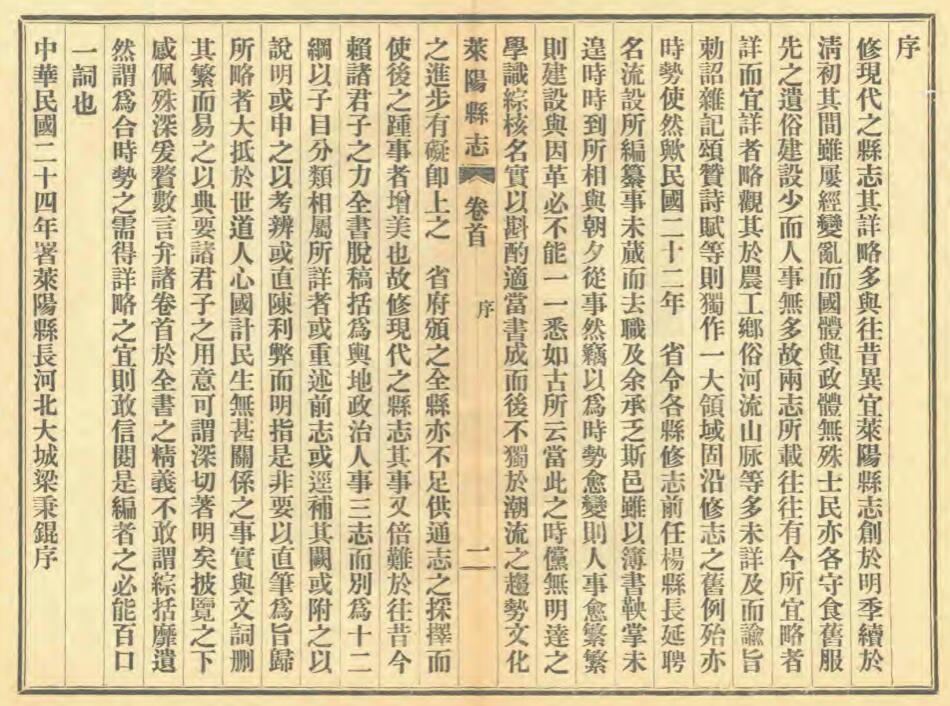 序
修現代之縣志其詳略多與往昔異宜萊陽縣志創於明季續於
淸初其間雖屢經變亂而國體與政體無殊士民亦各守食舊服
先之遺俗建設少而人事無多故兩志所載往往有今所宜略者
詳而宜詳者略觀其於農工鄉俗河流山脉等多未詳及而諭旨
勅詔雜記頌贊詩賦等則獨作一大領域固沿修志之舊例殆亦
時勢使然歟民國二十二年　省令各縣修志前任楊縣長延聘
名流設所編纂事未蕆而去職及余承乏斯邑雖以簿書鞅掌未
遑時時到所相與朝夕從事然竊以爲時勢愈變則人事愈繁繁
則建設與因革必不能一一悉如古所云當此之時儻無明達之
學識綜核名實以斟酌適當書成而後不獨於潮流之趨勢文化
萊陽縣志　卷首　序　二
之進步有礙卽上之　省府頒之全縣亦不足供通志之採擇而
使後之踵事者增美也故修現代之縣志其事又倍難於往昔今
賴諸君子之力全書脫稿括爲輿地政治人事三志而別爲十二
綱以子目分類相屬所詳者或重述前志或逕補其闕或附之以
說明或申之以考辨或直陳利弊而明指是非要以直筆爲旨歸
所略者大抵於世道人心國計民生無甚關係之事實與文詞刪
其繁而易之以典要諸君子之用意可謂深切著明矣披覽之下
感佩殊深爰贅數言弁諸卷首於全書之精義不敢謂綜括靡遺
然謂爲合時勢之需得詳略之宜則敢信閱是編者之必能百口
一詞也
中華民國二十四年署萊陽縣長河北大城梁秉錕序